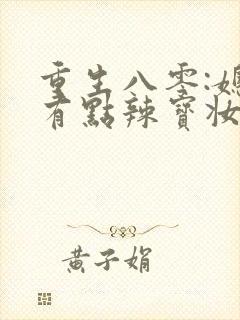 重生八零:媳
有點辣寶妝
黃子娟